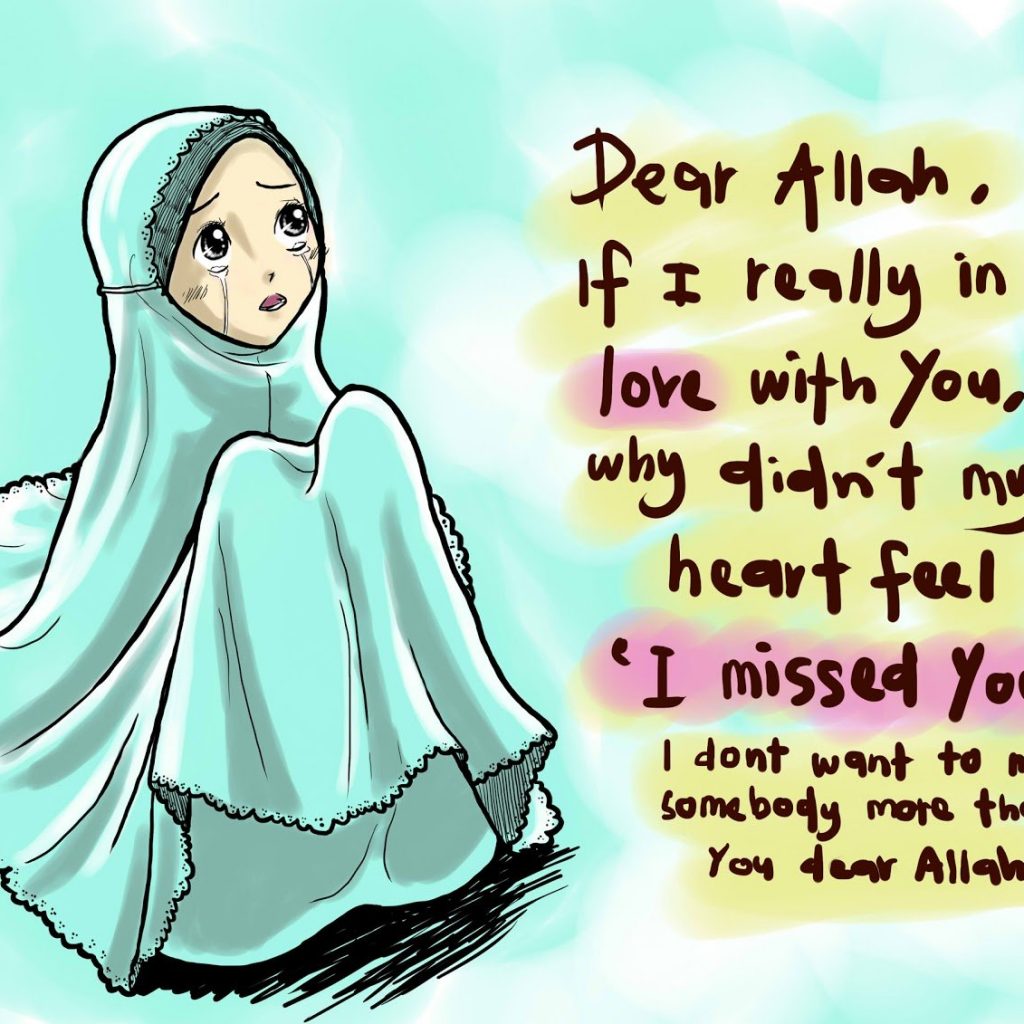 Dear Allah,
If I really in
love with You,
why didn't my
heart feel
'I missed You
I dont want to
somebody more
You dear Allah